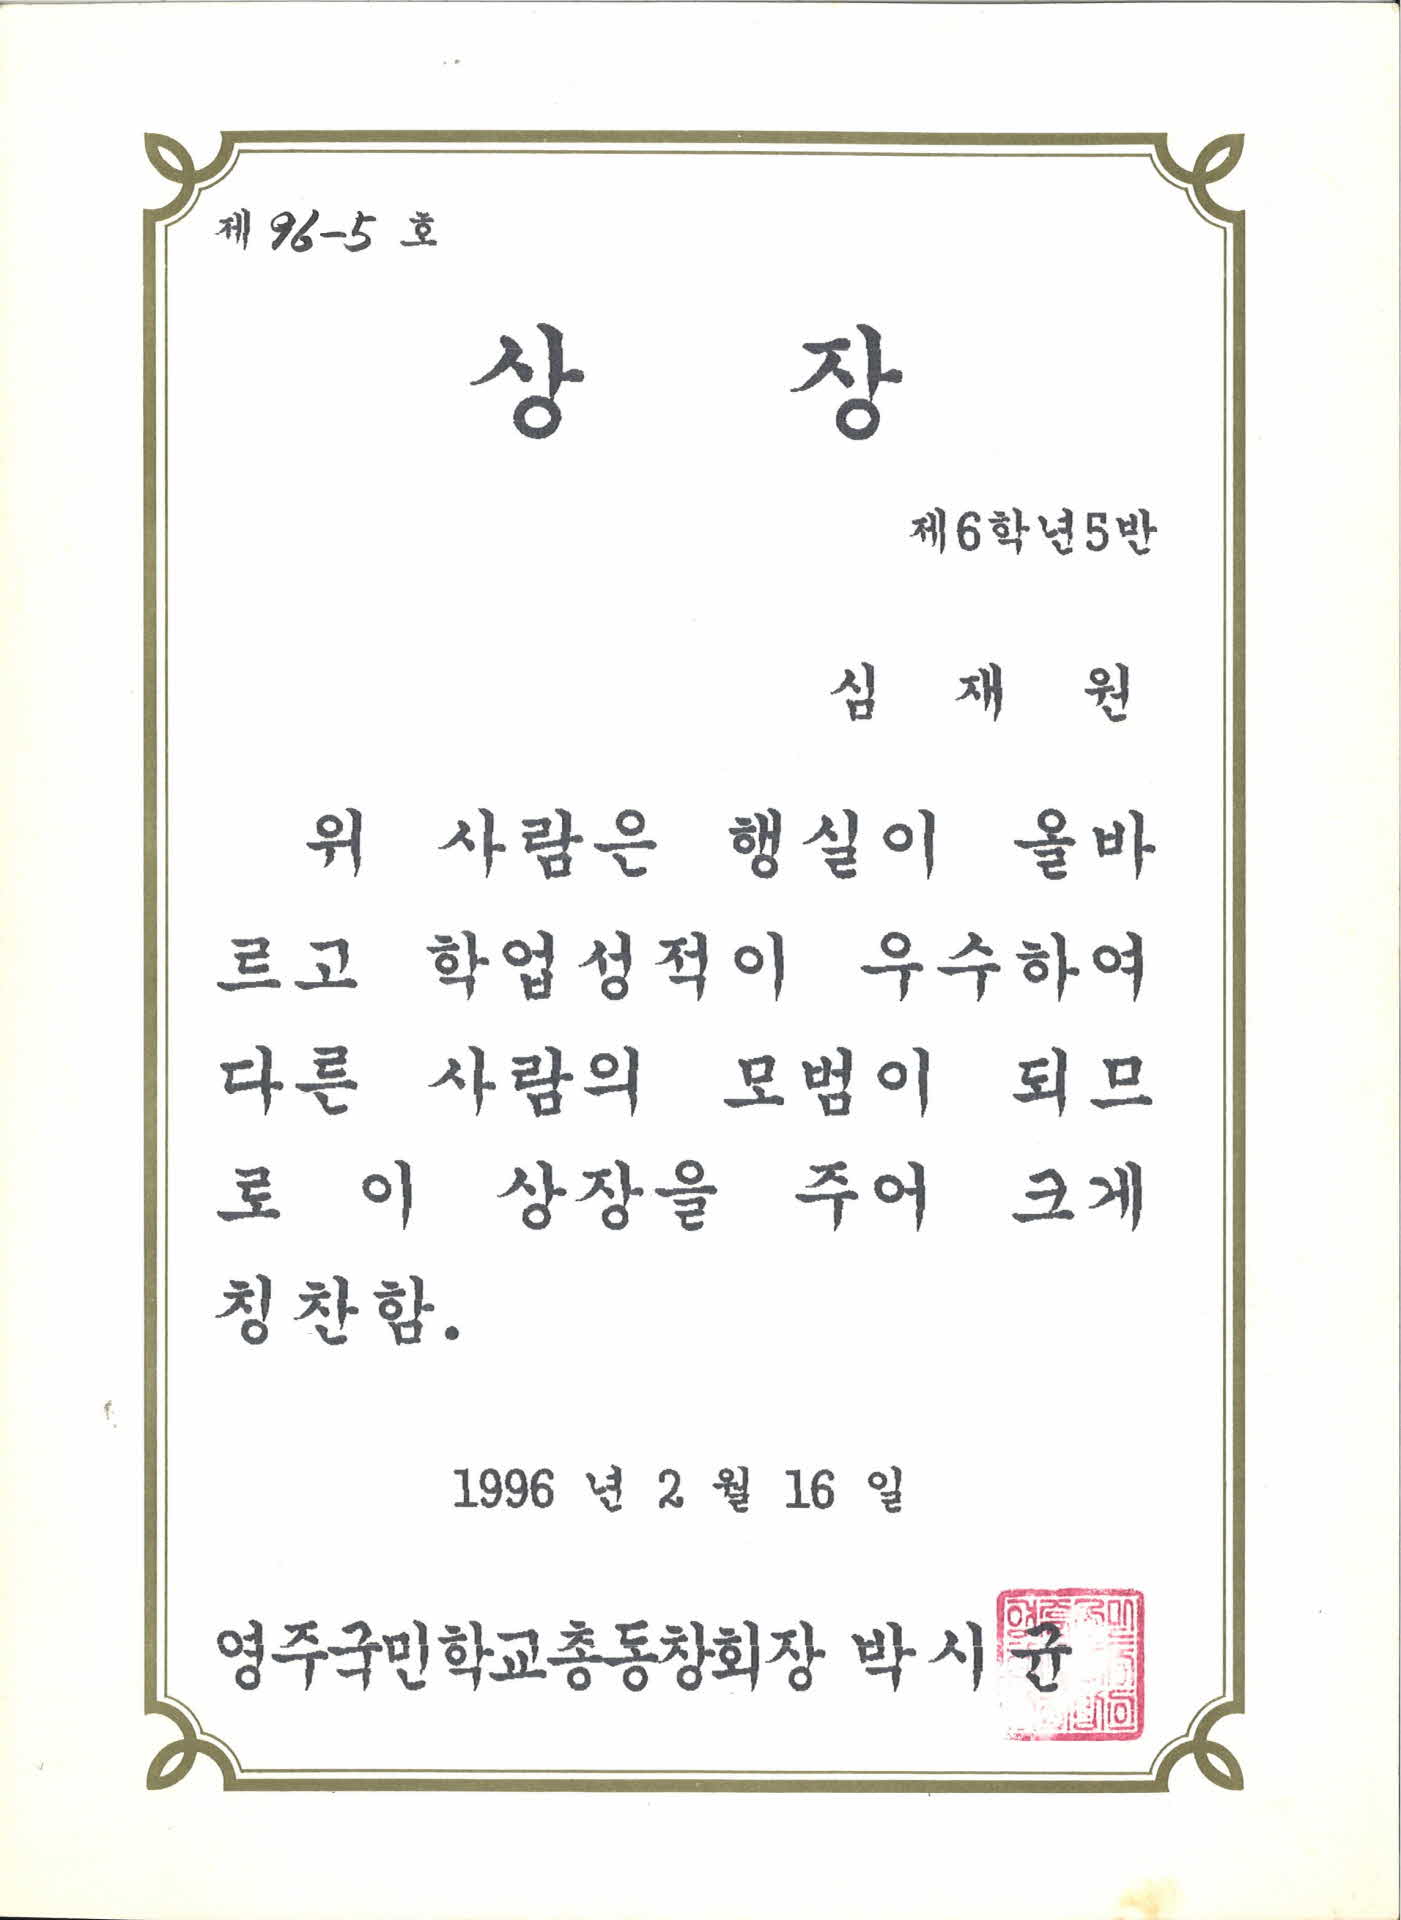 제 96-5 호
상 장
제6학년5반
심 재 원
위 사람은 행실이 올바
르고 학업성적이 우수하여
다른 사람의 모범이 되므
로 이 상장을 주어 크게
칭찬함.
1996 년 2 월 16 일
영주국민학교총동창회장 박시균